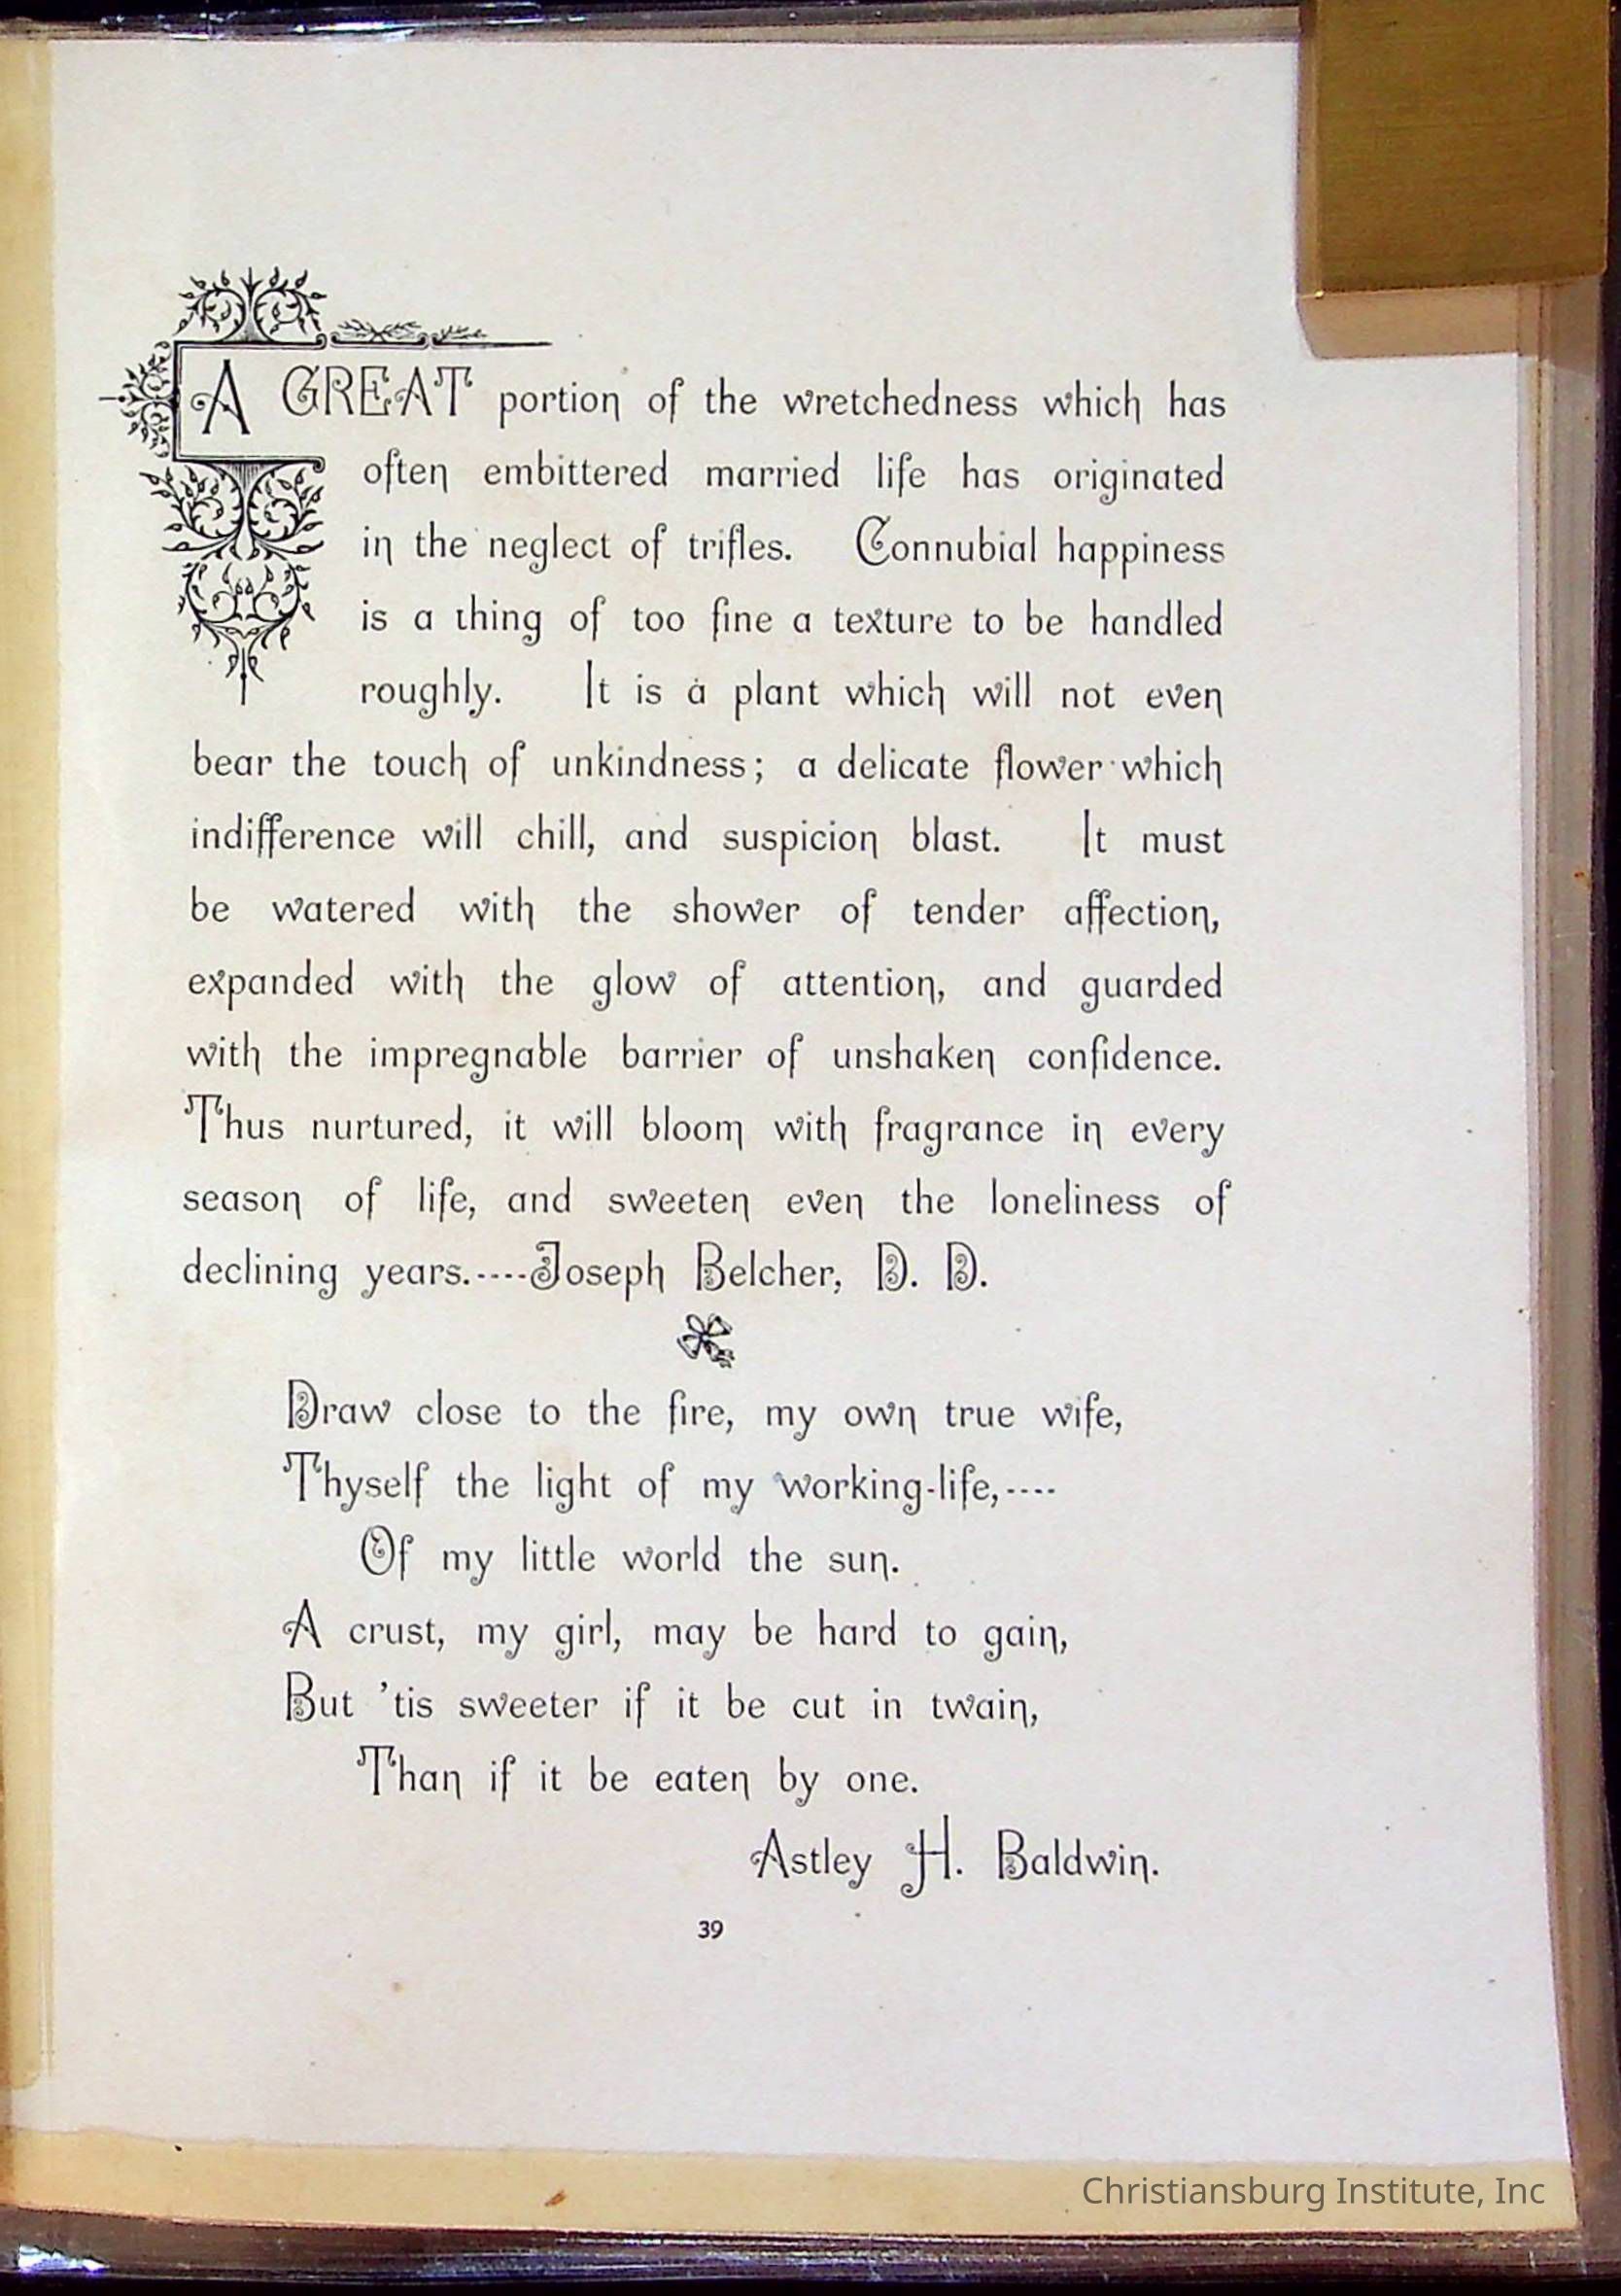 A GREAT portion of the wretchedness which has
often embittered married life has originated
in the neglect of trifles. Connubial happiness
is a thing of too fine a texture to be handled
roughly. It is a plant which will not even
bear the touch of unkindness; a delicate flower which
indifference will chill, and suspicion blast. It must
be watered with the shower of tender affection,
expanded with the glow of attention, and guarded
with the impregnable barrier of unshaken confidence.
Thus nurtured, it will bloom with fragrance in every
season of life, and sweeten even the loneliness of
declining years.----Joseph Belcher, D. D.
Draw close to the fire, my own true wife,
Thyself the light of my working-life,----
Of my little world the sun.
A crust, my girl, may be hard to gain,
But 'tis sweeter if it be cut in twain,
Than if it be eaten by one.
Astley H. Baldwin.
39
Christiansburg Institute, Inc